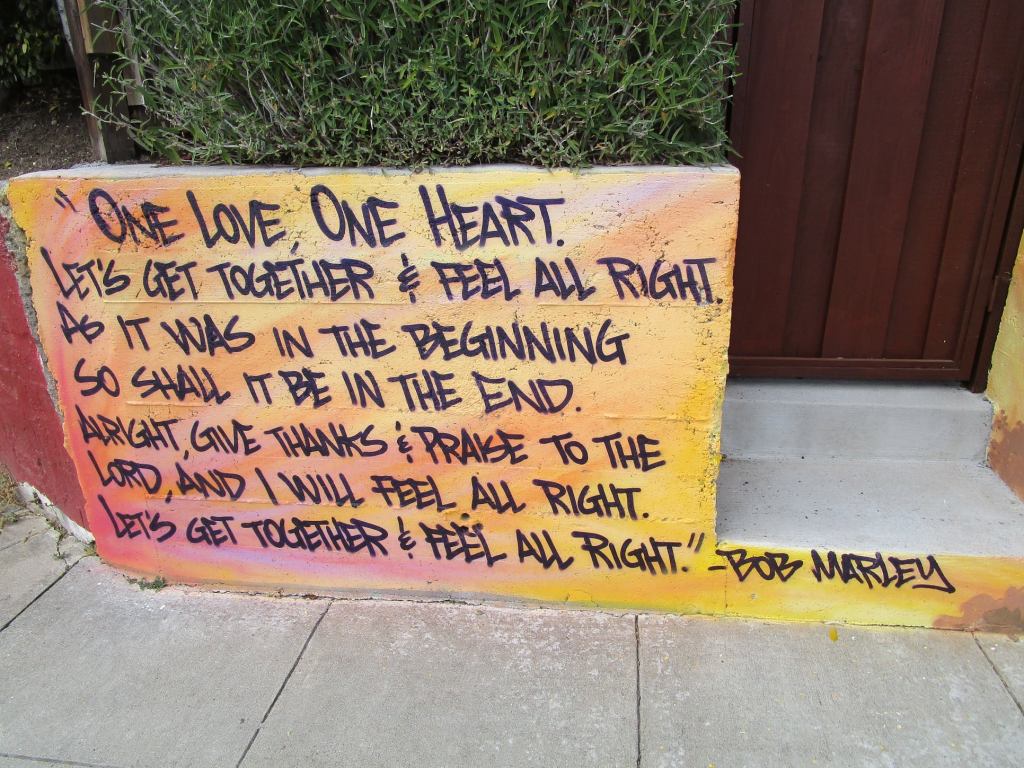 "ONE LOVE, ONE HEART.
LET'S GET TOGETHER & FEEL ALL RIGHT.
AS IT WAS IN THE BEGINNING
SO SHALL IT BE IN THE END.
ALRIGHT, GIVE THANKS & PRAISE TO THE
LORD, AND I WILL FEEL ALL RIGHT.
LET'S GET TOGETHER & FEEL ALL RIGHT." -BOB MARLEY